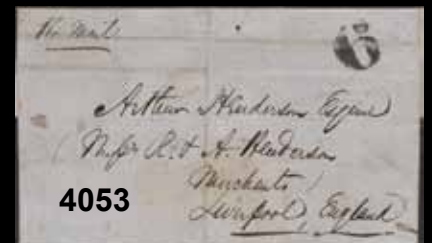 Per Mail
6
Arthur Henderson Esquire
Messrs R. & A. Henderson
Merchants
Liverpool, England
4053